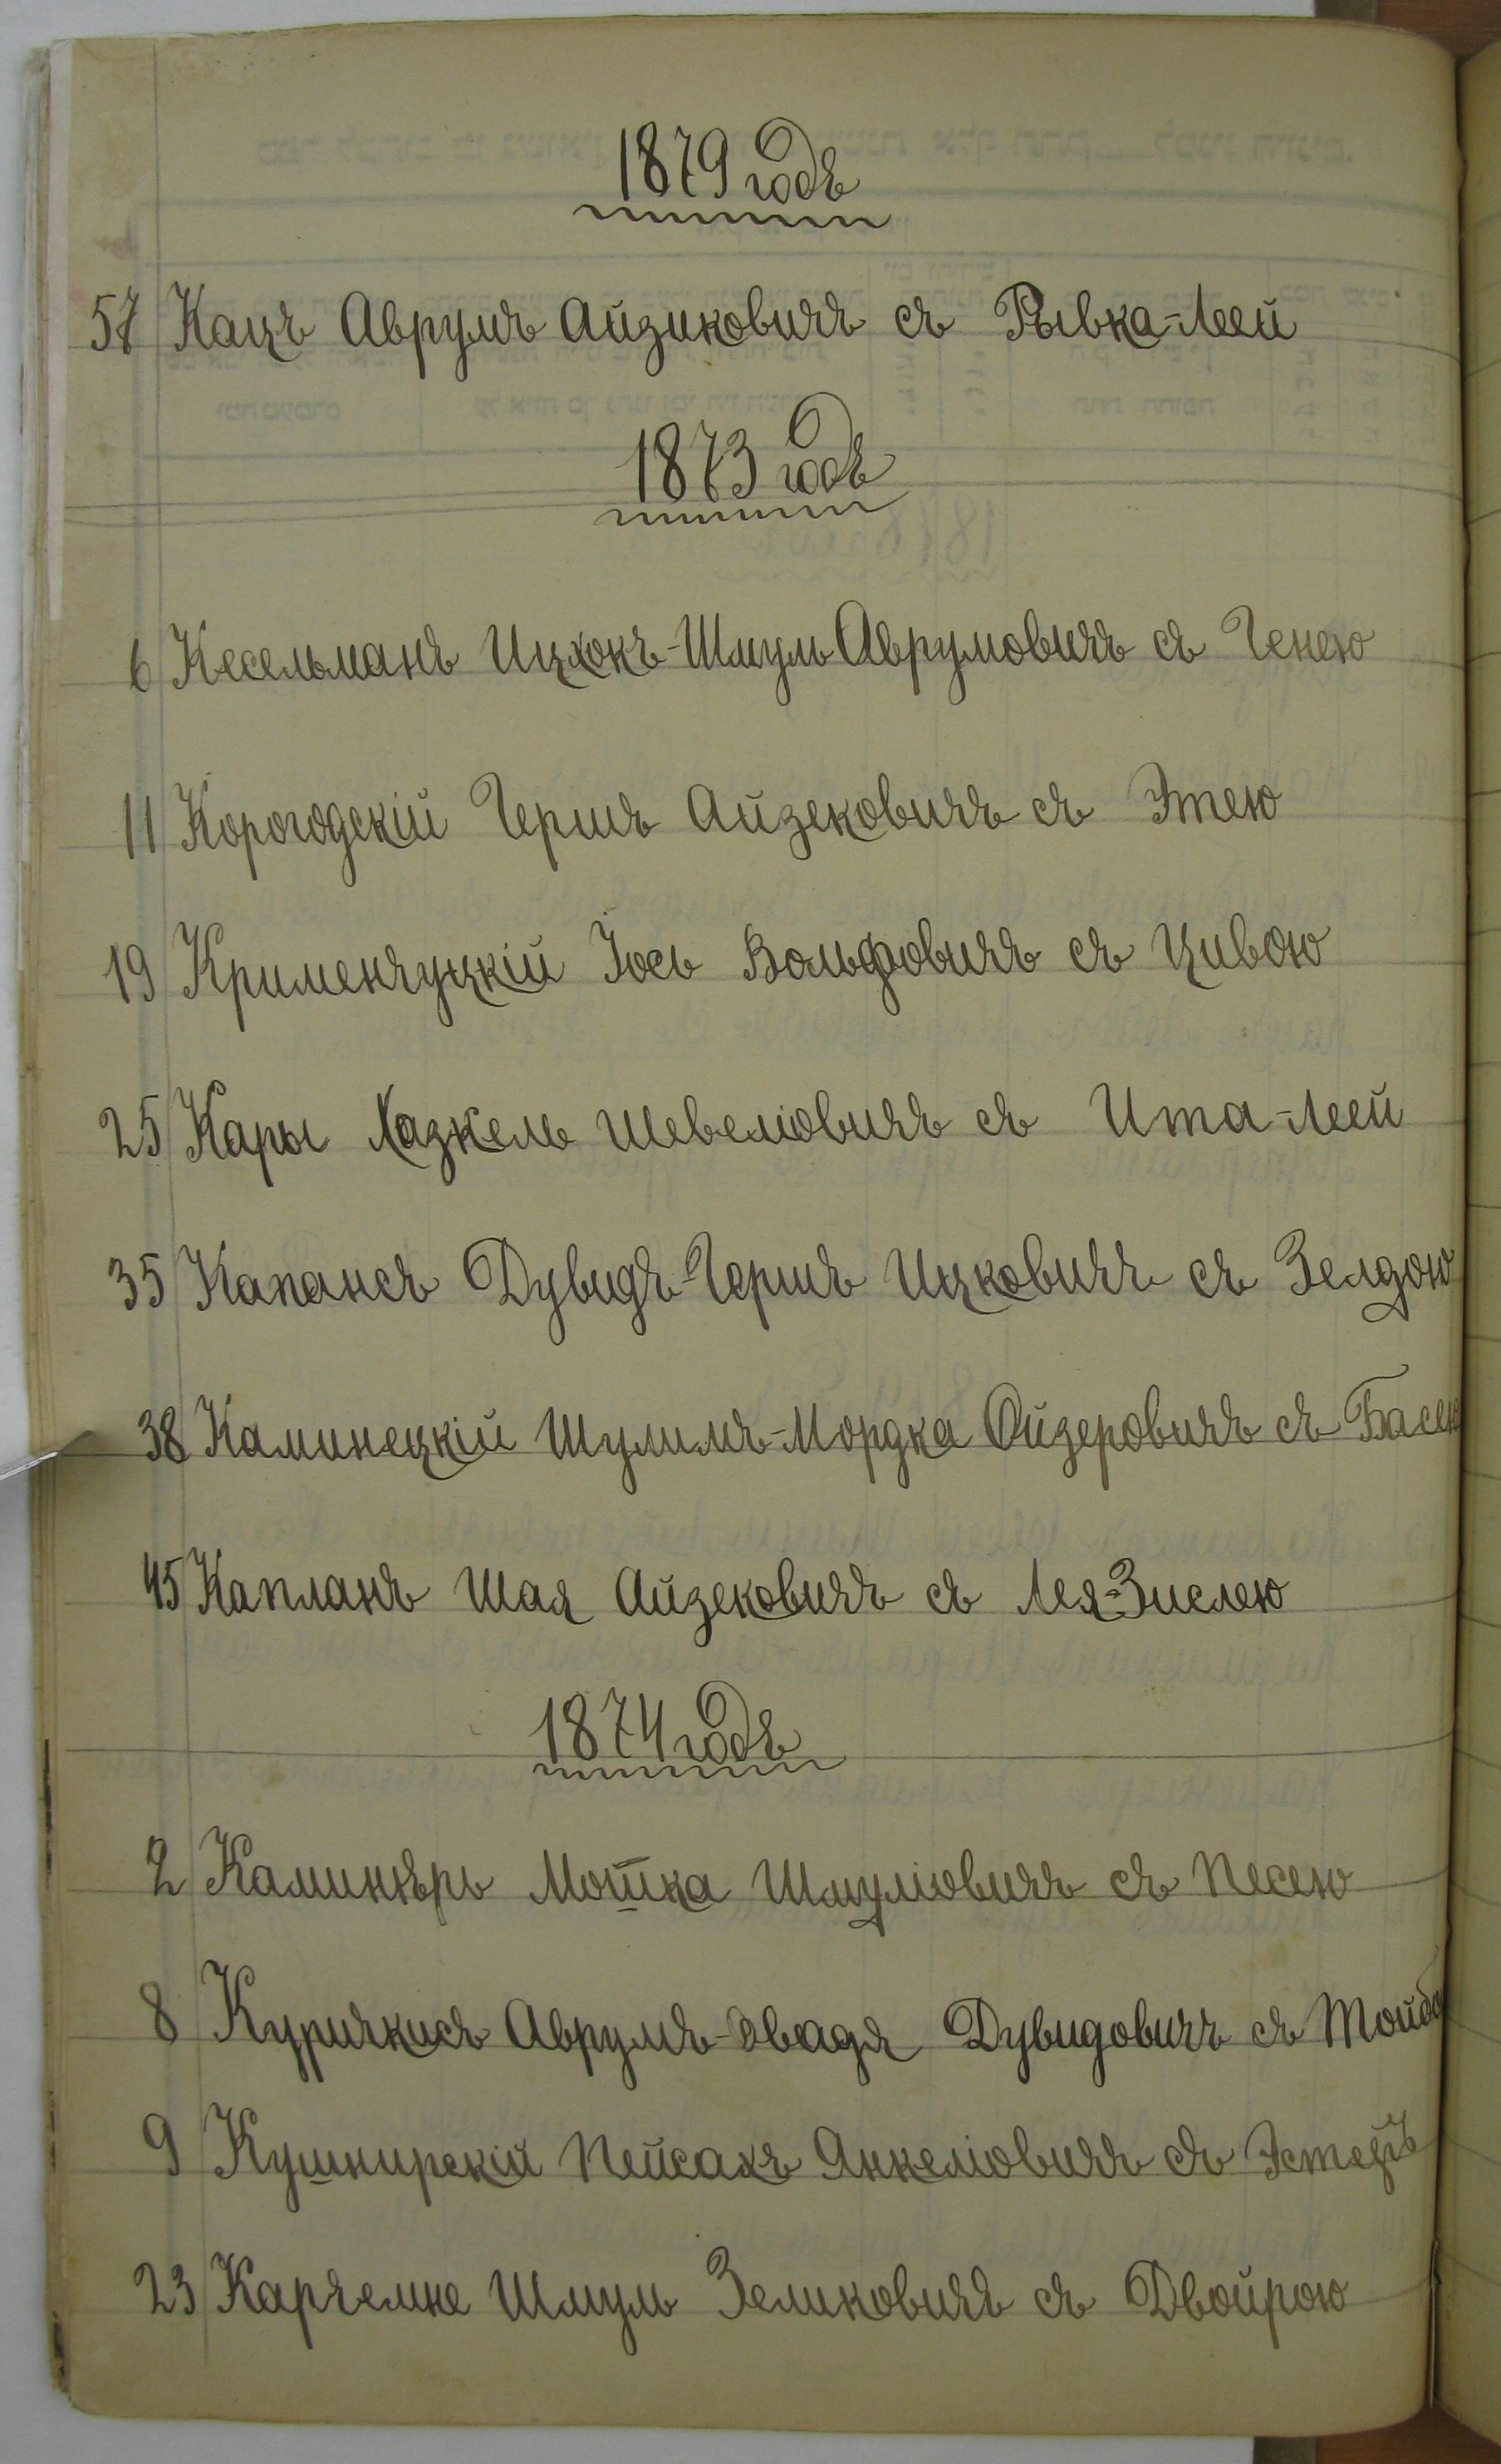 1879 годъ
57 Кацъ Аврумъ Айзиковичъ съ Рывка-Леей
1873 годъ
6 Кесельманъ Ицхокъ-Шмуль Аврумовичъ съ Генею
11 Корогодскій Гершъ Айзековичъ съ Этею
19 Крименчуцкій Іось Вольфовичъ съ Цивою
25 Кары Хазкель Шевеліовичъ съ Ита-Леей
35 Капансъ Дувидъ-Гершъ Ицковичъ съ Зелдою
38 Каминецкій Шулимъ-Мордка Ойзеровичъ съ Басею
45 Капланъ Шая Айзековичъ съ Лея-Зислею
1874 годъ
2 Каминкеръ Мошка Шмуліовичъ съ Песею
8 Аврумъ-Овадя Дувидовичъ съ Тойбо
9 Кушнирскій Пейсахъ Янкеліовичъ съ
23 Карчемне Шмуль Зеликовичъ съ Двойрою